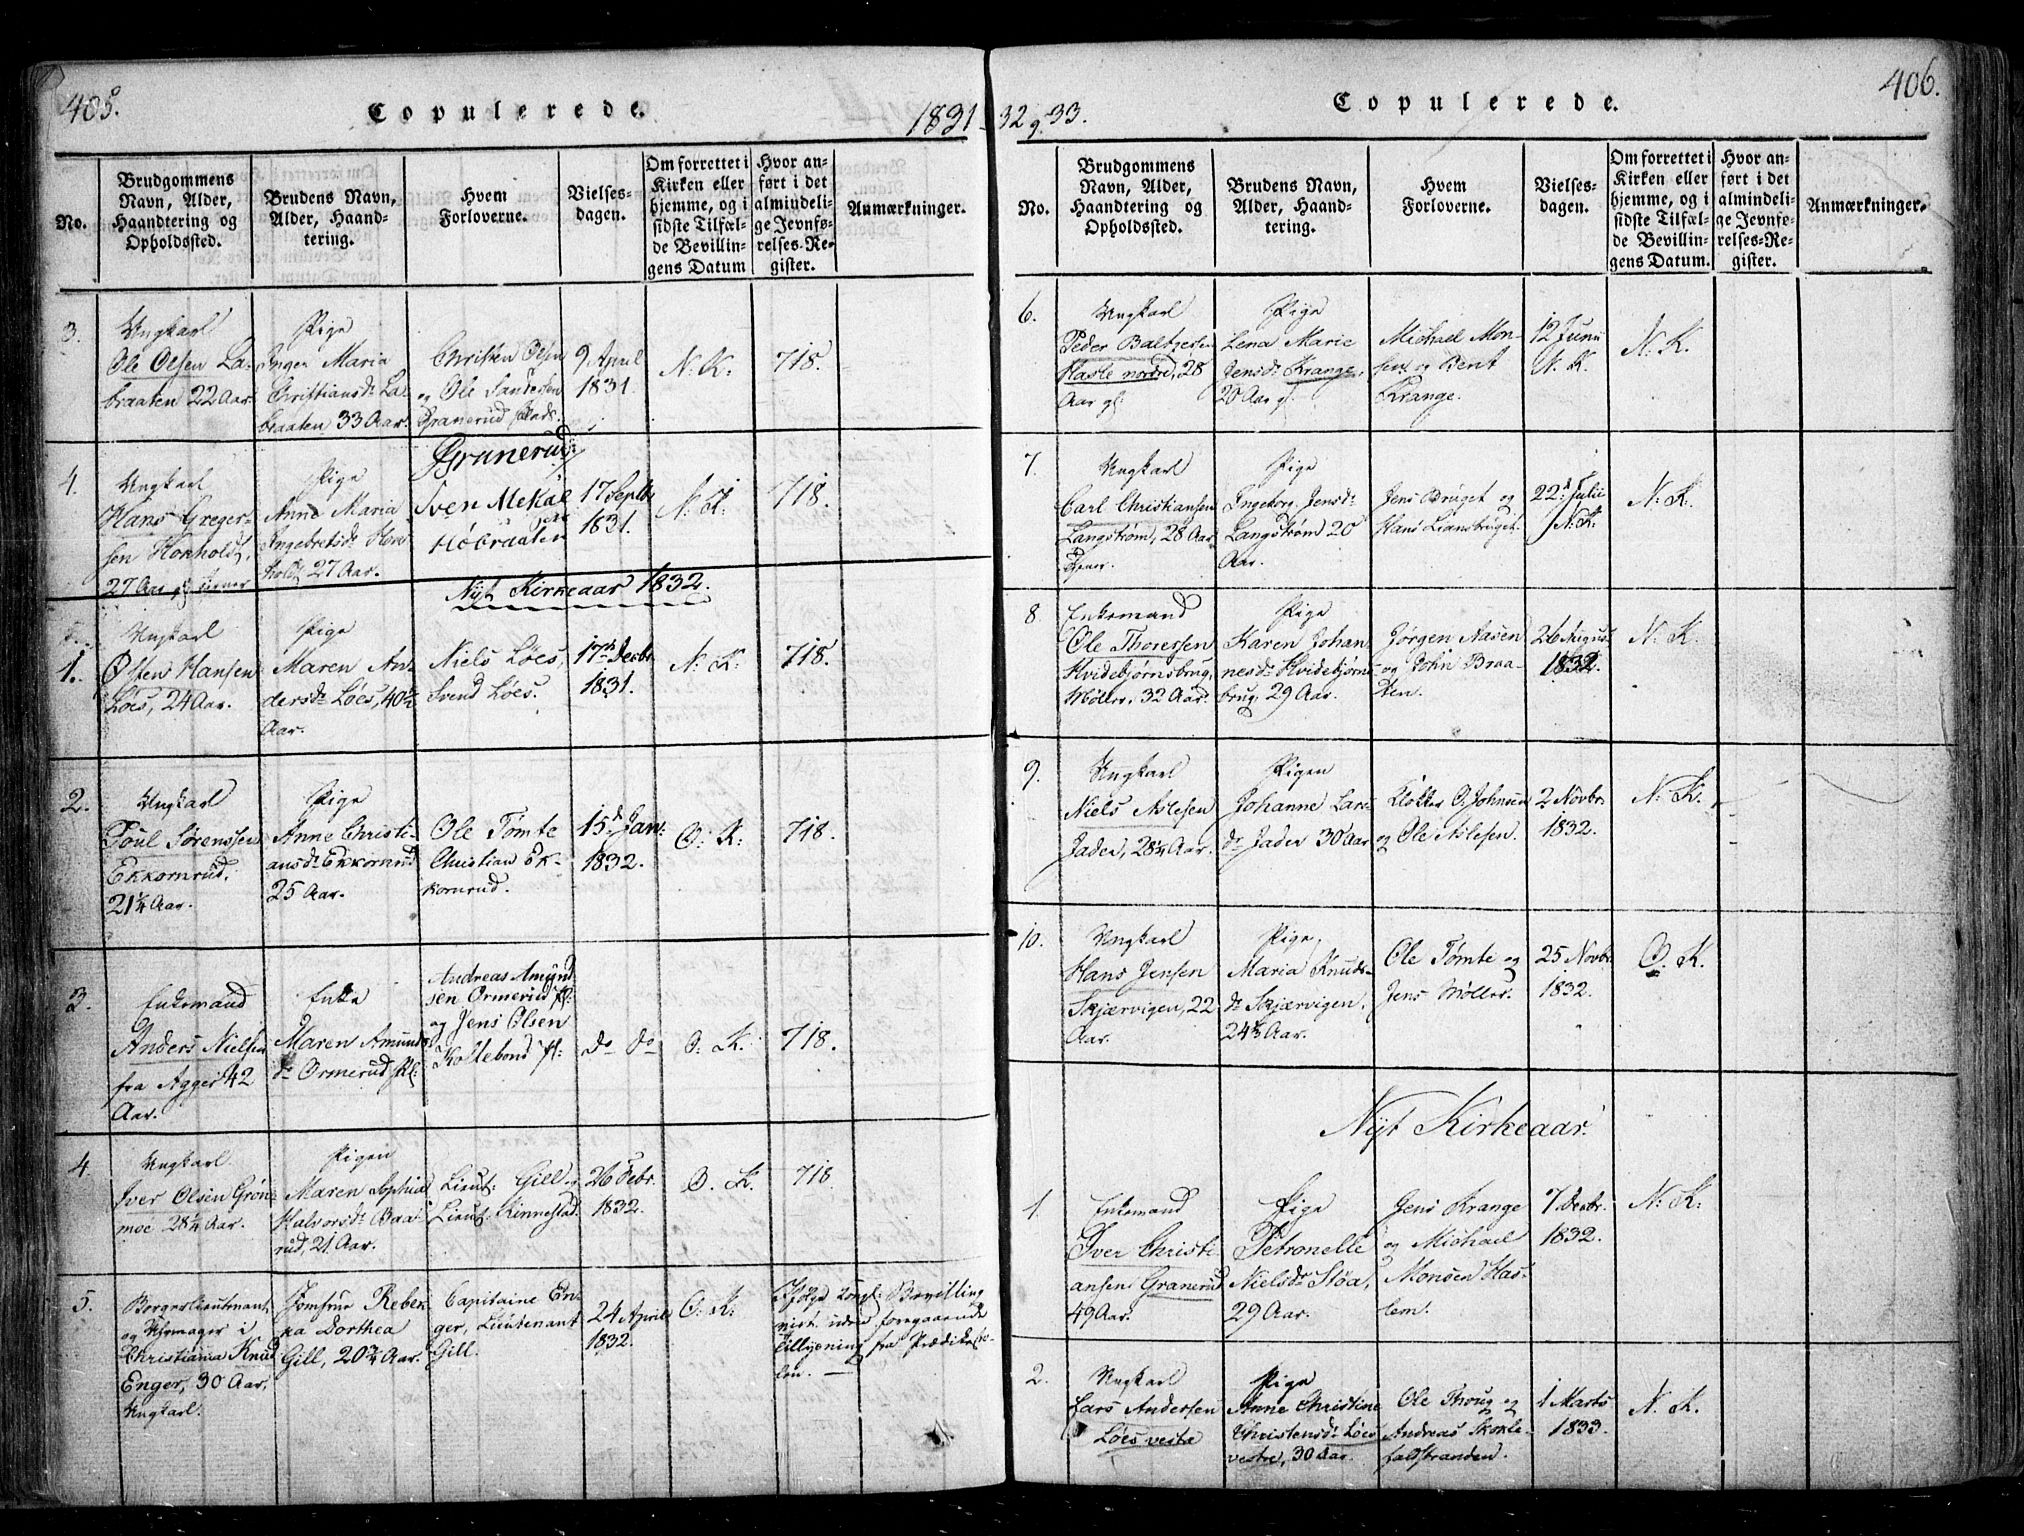 405.
Copulerede.
1831
No.
Brudgommens
Navn, Alder,
Haandtering og
Opholdssted.
Brudens Navn,
Alder, Haand-
tering.
Hvem
Forloverne.
Vielses-
dagen.
Om forrettet i
Kirken eller
hjemme, og i
sidste Tilfæl-
de Bevillin-
gens Datum
Hvor an-
ført i det
almindeli-
ge Jevnfø-
relses-Re-
gister.
Anmærkninger.
3.
Ungkarl
Ole Olsen La-
braaten 22 Aar.
Pige
Ingen Maria
Christiansd. La-
braaten 33 Aar.
Christen Olsen
og Ole
Granerud
9. April
1831.
N. K:
718.
4.
Ungkarl
Hans Greger-
sen Honhold,
27 Aar
Pige
Anne Maria
Ingebretsd. Hon-
hold 27 Aar.
Granerud
Sven
Høbraaten
17 Septbr
1831.
N. K.
718.
Nyt Kirkeaar 1832.
1.
Ungkarl
Østen Hansen
Løes, 24 Aar.
Pige
Maren An-
dersd. Løes, 40½
Aar.
Niels Løes,
Svend Løes.
17de Decbr.
1831.
N. K:
718.
2.
Ungkarl
Poul Sørenssen
Ekkornrud,
21¼ Aar.
Pige
Anne Christi-
ansd. Ekkornrud
25 Aar.
Ole Tømte
Christian Ek-
kornrud.
15d Jan:
1832.
O. K.
718.
3.
Enkemand
Anders Nielsen
fra Agger 42
Aar.
Enke
Maren Amunds
d. Ormerud
Andreas Amund
sen Ormerud
og Jens Olsen
Kolbebond
Do Do
O. K.
718.
4
Ungkarl.
Iver Olsen Grøn-
moe 28¼ Aar.
Pigen
Maren Sophia
Halvorsd. Baa-
rud, 21 Aar.
Lieut: Gill og
Lieut. Kinnestad.
26 Febr.
1832.
O. K.
718
5.
Borgerlieutnant
og Uhrmager i
Christiania Knud
Enger, 30 Aar,
Ungkarl.
Jomfrue Rebek-
ka Dorthea
Gill, 20¾ Aar.
Capitaine En-
ger, Lieutenant
Gill.
24 April
1832.
O. K.
Ifølge Kongl: Bevilling
viet uden foregaaende
Tillysning fra Prædikesto-
len.
406.
32 og 33.
Copulerede.
No.
Brudgommens
Navn, Alder,
Haandtering og
Opholdssted.
Brudens Navn,
Alder, Haand-
tering.
Hvem
Forloverne.
Vielses-
dagen.
Om forrettet i
Kirken eller
hjemme, og i
sidste Tilfæl-
de Bevillin-
gens Datum.
Hvor an-
ført i det
almindeli-
ge Jevnfø-
relses-Re-
gister.
Anmærkninger.
6.
Ungkarl
Peder Baltzersen
Hasle nordre, 28
Aar gl.
Pige
Lena Marie
Jensd. Krange,
20 Aar gl.
Michael Mon-
sen og Bent
Krange.
12 Junii
N. K.
N. K.
7.
Ungkarl
Carl Christiansen
Langstrøm, 28 Aar
Tjener.
Pige
Ingeborg Jensd.
Langstrøm 20
Aar.
Jens Bruget og
Hans Liansbruget.
22d Julii
N. K.
N. K.
8
Enkemand
Ole Thoresen
Hvidebjørnsbrug,
Møller, 32 Aar.
Pige
Karen Johan
nesd. Hvidebjørns-
brug, 29 Aar.
Jørgen Aasen
og John Braa-
ten.
26 August
1832.
N. K.
9.
Ungkarl
Niels Aslesen
Jader, 28¼ Aar.
Pigen
Johanne Lars
d. Jader 30 Aar
Klokker O. Johnsen
og Ole Aslesen.
2 Novbr.
1832.
N. K.
10.
Ungkarl
Hans Jensen
Skjærvigen, 22
Aar.
Pige
Maria Knuds-
d. Skjærvigen,
24 Aar.
Ole Tømte og
Jens Møller.
25 Novbr.
1832.
O. K.
Nyt Kirkeaar.
1.
Enkemand
Iver Christi-
ansen Granerud
49 Aar.
Pige
Petronelle
Nielsdr. Støa,
29 Aar.
Jens Krange
og Michael
Monsen Has-
lem.
7 Decbr.
1832.
N. K.
2.
Ungkarl
Lars Andersen
Løes vestre
Pige
Anne Christine
Christensd. Løes
vestre, 30 Aar.
Ole Thoug og
Andreas Skokle-
faldstranden.
1 Marts
1833.
N. K.